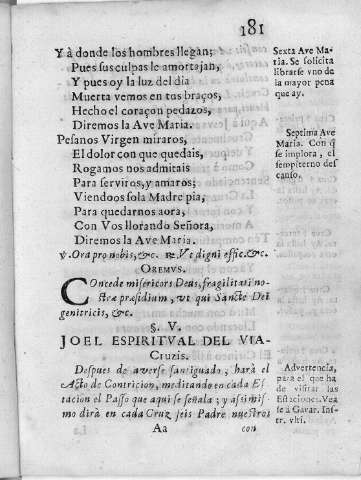 181
Y à donde los hombres llegan;
Pues sus culpas le amortajan,
Y pues oy la luz del dia
Muerta vemos en tus braços,
Hecho el coraçon pedazos,
Diremos la Ave Maria.
Pesanos Virgen miraros,
El dolor con que quedais,
Rogamos nos admitais
Para serviros, y amaros;
Viendoos sola Madre pia,
Para quedarnos aora,
Con Vos llorando Señora,
Diremos la Ave Maria.
℣. Ora pro nobis, &c. ℟. Vt digni effic. &c.
OREMVS.
COncede misericors Deus, fragilitati no-
stræ præsidium, vt qui Sanctæ Dei
genitricis, &c.
§. V.
JOEL ESPIRITVAL DEL VIA-
Cruzis.
Despues de averse santiguado, harà el
Acto de Contricion, meditando en cada Es-
tacion el Passo que aqui se señala; y assimis-
mo dirà en cada Cruz seis Padre nuestros
Aa con
Sexta Ave Ma-
ria. Se solicita
librarse vno de
la mayor pena
que ay.
Septima Ave
Maria. Con q̃
se implora, el
sempiterno des
canso.
Advertencia,
para el que ha
de visitar las
Estaciones. Vea
se à Gavar. Ins-
tr. vlti.